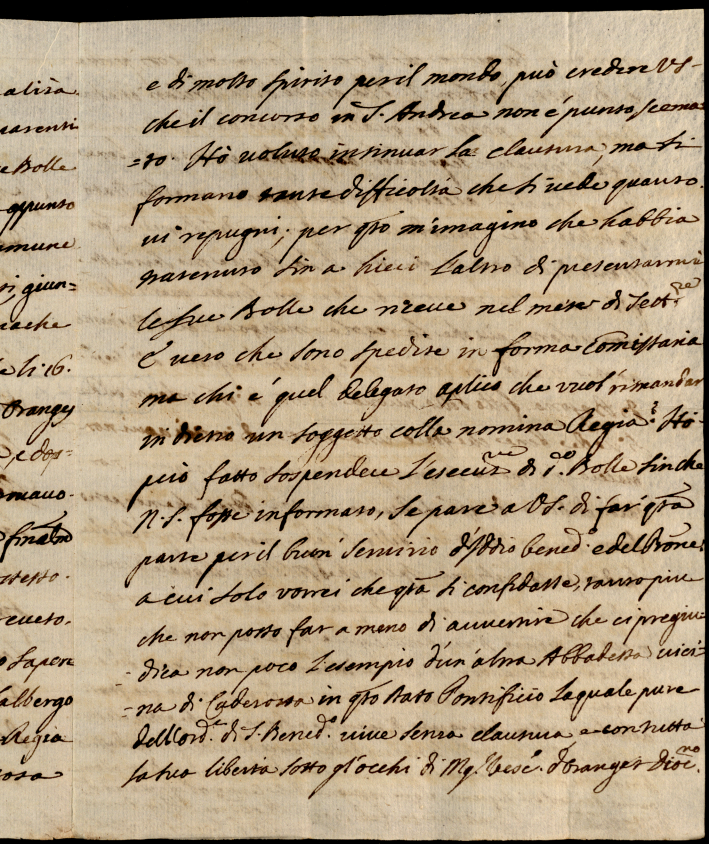 alira
parenti
e Bolle
appunto
comune
giun=
che
li 16.
Oranges
e dop=
finalm
retto.
ceveto.
o sapere
l'albergo
Regia
cosa
e di molto spirito per il mondo, può credere VS-
che il concorso in S. Andrea non é punto scema=
=to. Hò voluto insinuar la clausura, ma si
formano tante difficoltà che si vede quanto
vi repugni; per qto m'imagino che habbia
trattenuto sin a hieri l'altro di presentarmi
le sue Bolle che riceve nel mese di Settre
É vero che sono spedite in forma Comissaria
ma chi é quel delegato aplico che vuol rimandar
in dietro un soggetto colla nomina Regia? Hò
però fatto sospendere l'esecuzne di d.o Bolle sin che
N.S. fosse informato, se pare a VS. di far qta
parte per il buon servizio d'Iddio bened.o e del Prone
a cui solo vorrei che qta si confidasse, tanto piu
che non posso far a meno di avvertire che ci pregiu=
=dica non poco l'esempio d'un'altra Abbadessa vici=
=na di Caderossa in qto stato Pontificio la quale pure
dell'ord.e di S. Bened.o vive senza clausura e con tutta
la sua libertà sotto gl'occhi di Mg.r Vesc.o d'Oranges Dioc.no